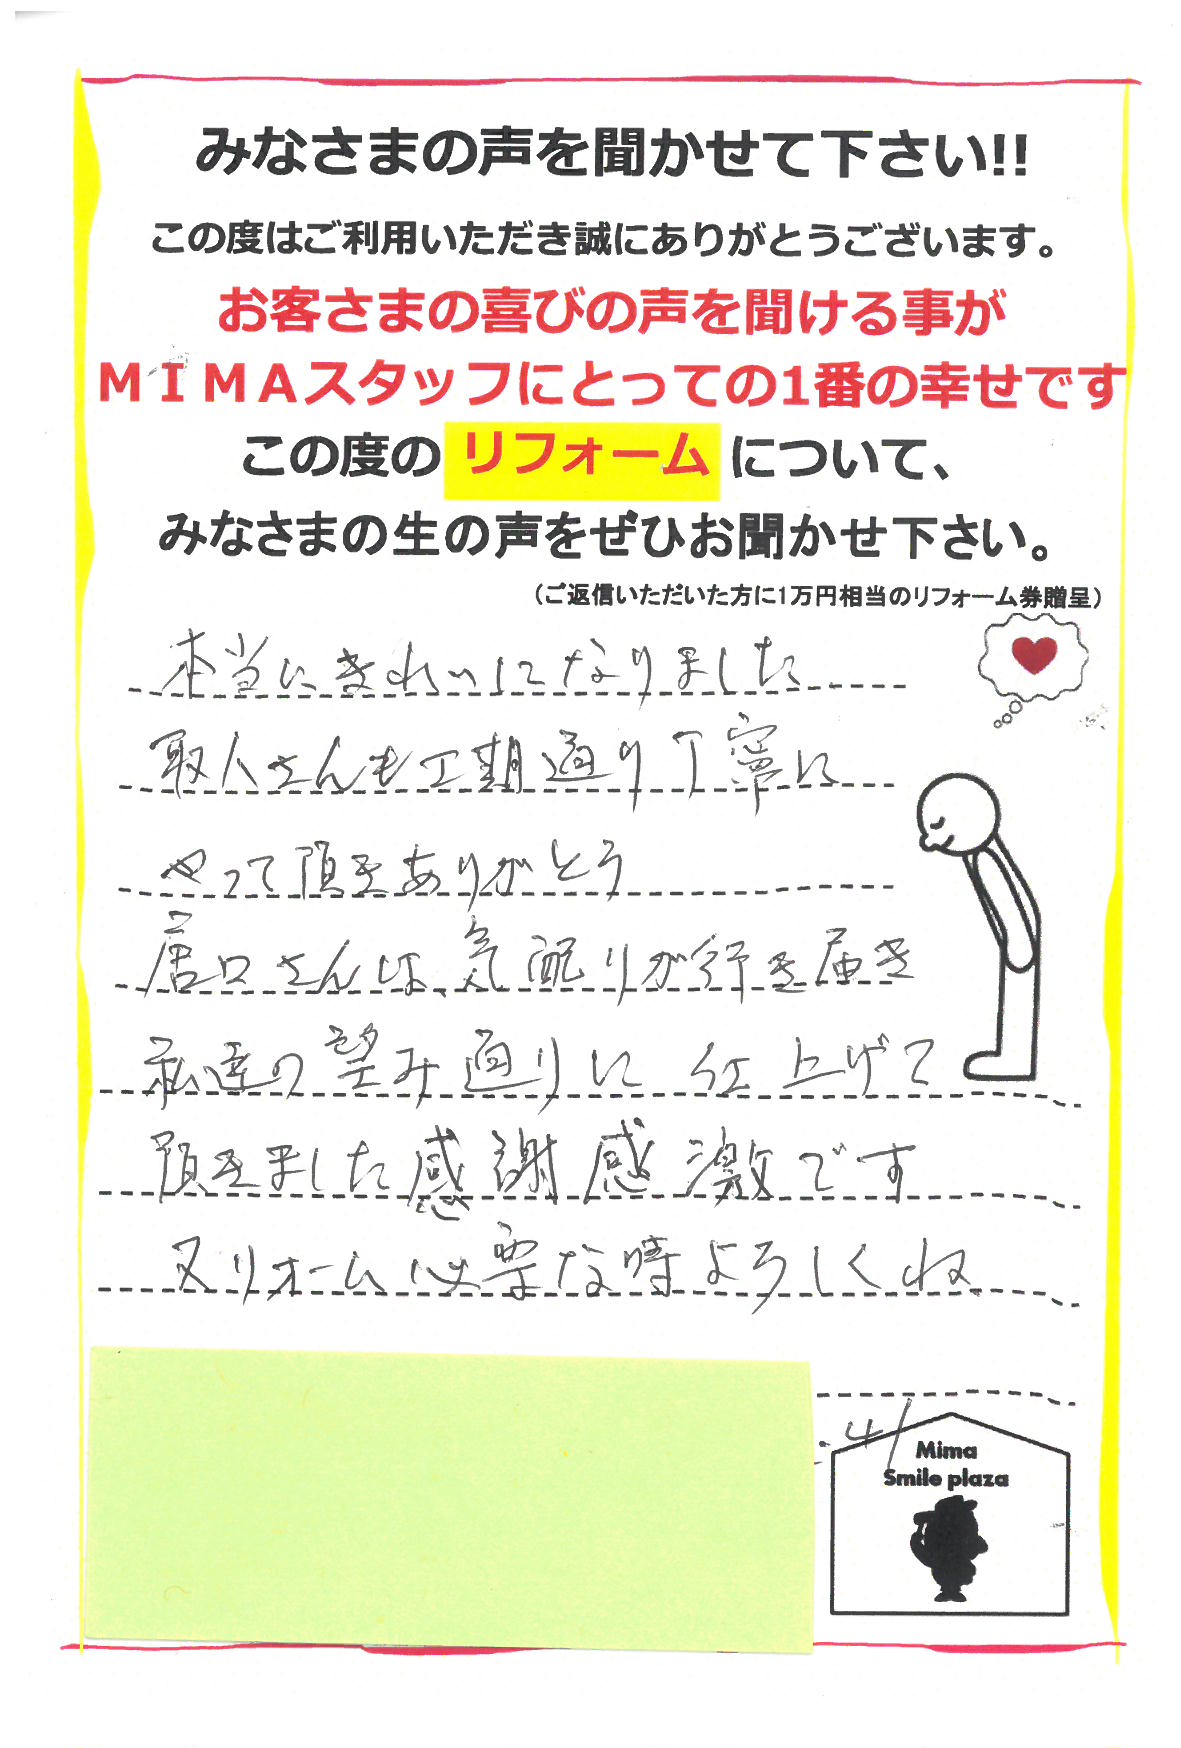 みなさまの声を聞かせて下さい!!
この度はご利用いただき誠にありがとうございます。
お客さまの喜びの声を聞ける事が
ＭＩＭＡスタッフにとっての1番の幸せです
この度の リフォーム について、
みなさまの生の声をぜひお聞かせ下さい。
（ご返信いただいた方に1万円相当のリフォーム券贈呈）
本当にきれいになりました
さんも工期通り丁寧に
やって頂きありがとう
さんは、気配りが行き届き
私達の望み通りに仕上げて
頂きました感謝感激です
又リフォーム必要な時よろしくね
Mima
Smile plaza